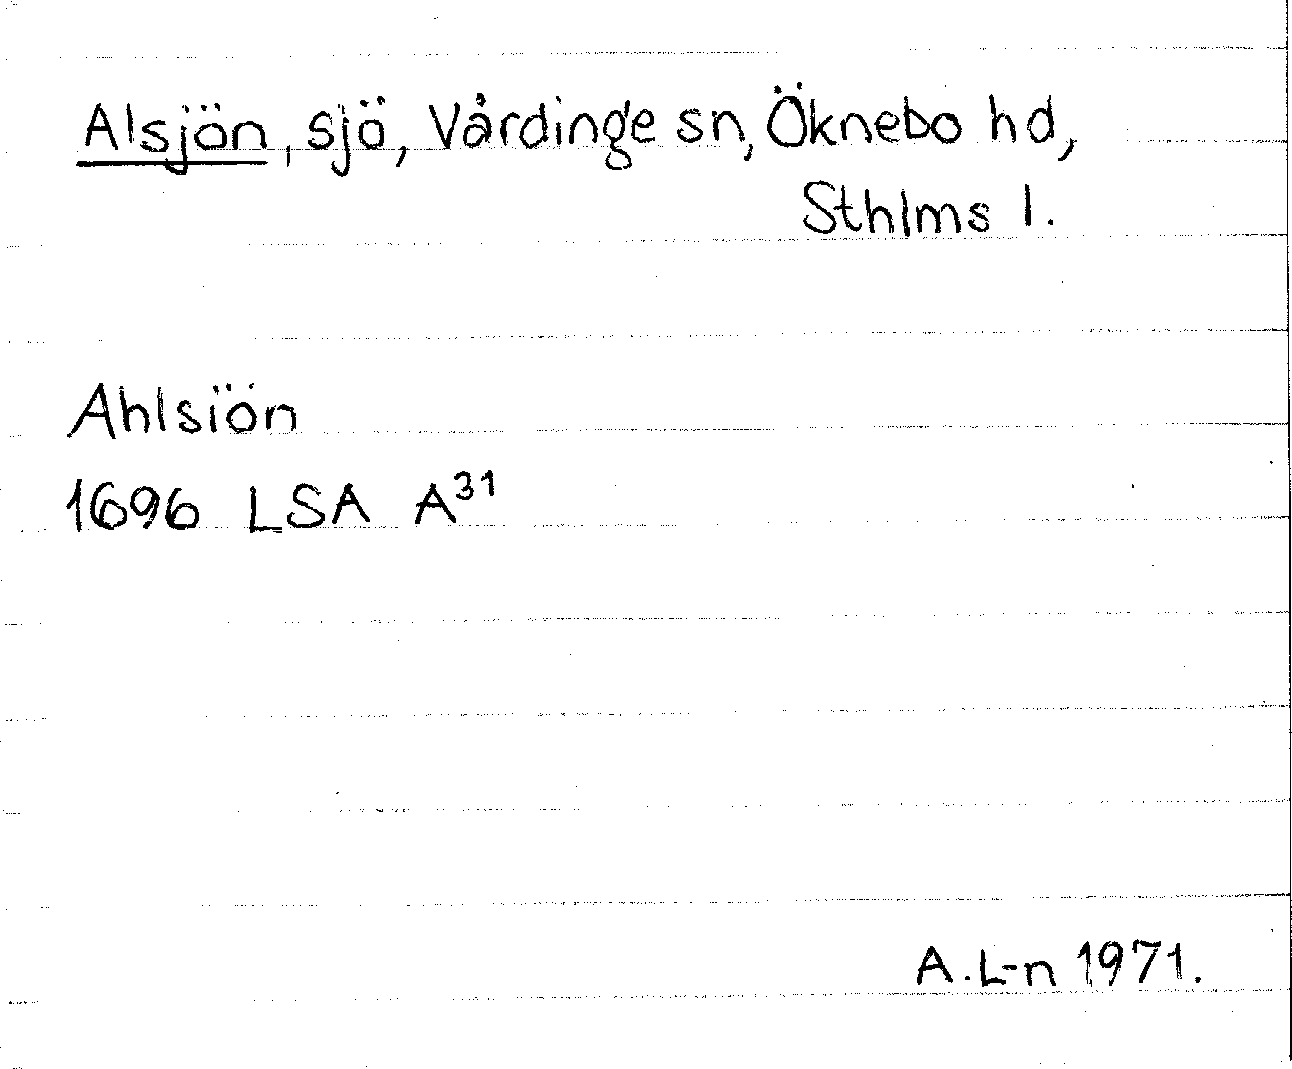 Alsjön, sjö, Vårdinge sn, Öknebo hd,
Sthlms l.
Ahlsiön
1696 LSA A³¹
A.L-n 1971.